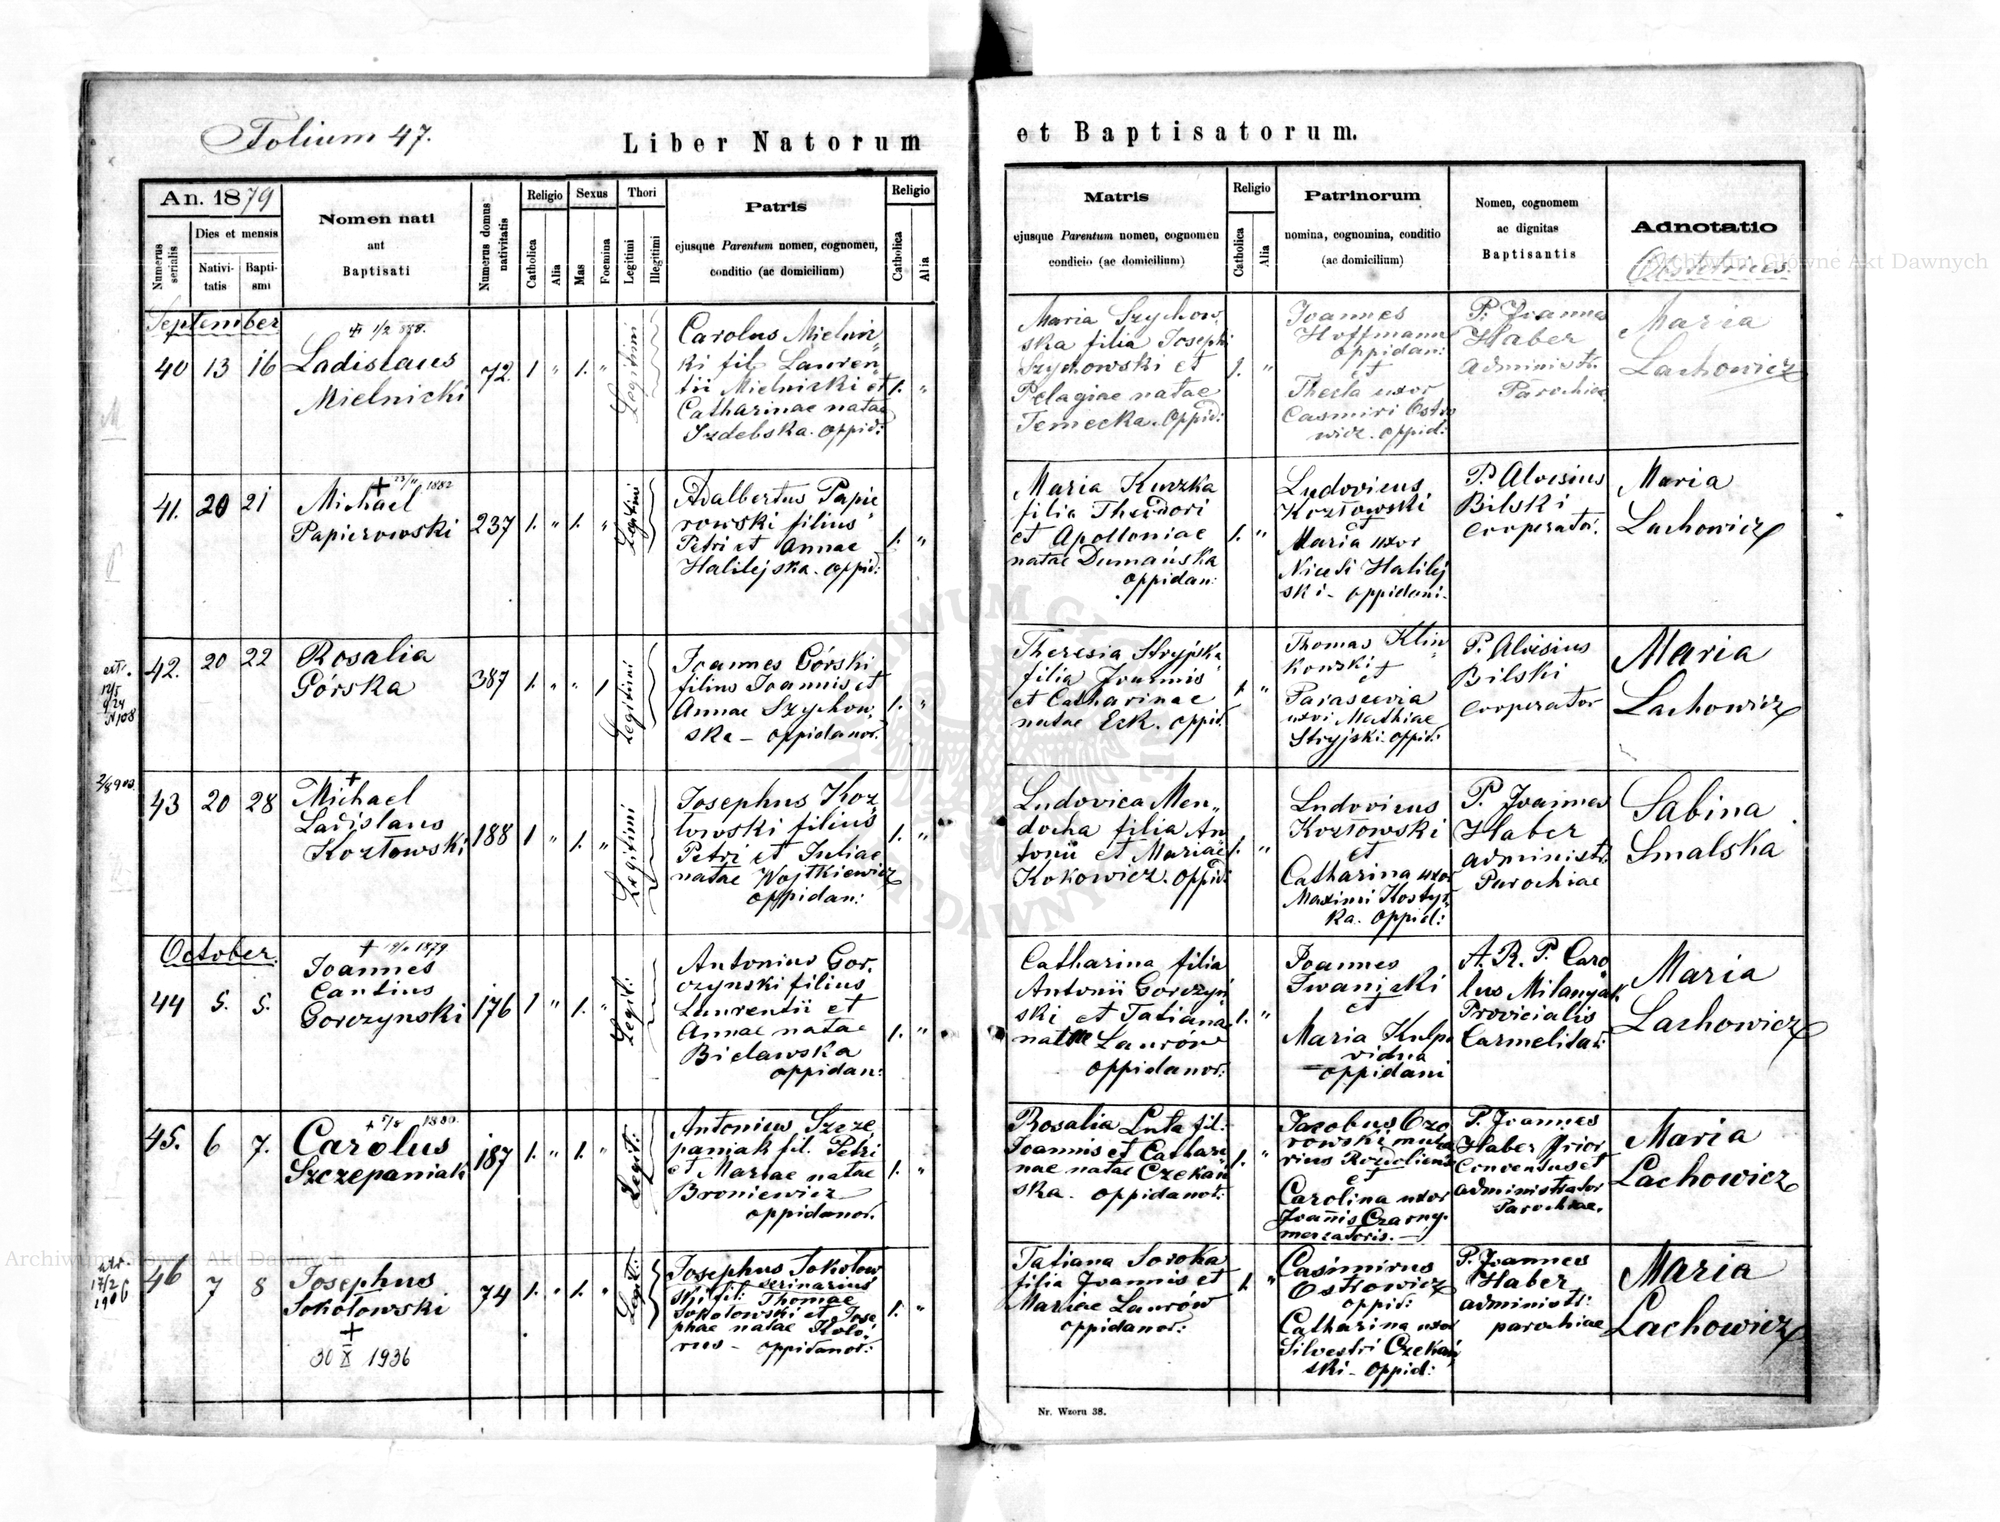 Folium 47.
Liber Natorum
et Baptisatorum.
An. 1879
Numerus serialis
Dies et mensis
Nativitatis
Baptismi
Nomen nati
aut
Baptisati
Numerus domus nativitatis
Religio
Catholica
Alia
Sexus
Mas
Foemina
Thori
Legitimi
Illegitimi
Patris
ejusque Parentum nomen, cognomen,
conditio (ac domicilium)
Religio
Catholica
Alia
Matris
ejusque Parentum nomen, cognomen
condicio (ac domicilium)
Religio
Catholica
Alia
Patrinorum
nomina, cognomina, conditio
(ac domicilium)
Nomen, cognomem
ac dignitas
Baptisantis
Adnotatio
Obstetrices.
September
40 13 16
Ladislaus
Mielnicki
72. 1 " 1. "
Legitimi
Carolus Mielnic
ki fil. Lauren
tii Mielnicki et
Catharinae natae
Izdebska. oppid:
1. "
Maria Szychow
ska filia Josephi
Szychowski et
Pelagiae natae
Temecka. Oppid:
1. "
Joannes
Hoffmann
oppidan:
et
Thecla uxor
Casmiri Ostro
wicz. oppid:
P. Joannes
Haber
administr.
Parochiae
Maria
Lachowicz
41. 20 21
+ 23/11 1882
Michael
Papierowski
237 1. " 1. "
Legitimi
Adalbertus Papie
rowski filius
Petri et Annae
Halilejska. oppid:
1. "
Maria Kuczka
filia Theodori
et Apolloniae
natae Dumańska
oppidan:
1. "
Ludovicus
Kozłowski
et
Maria uxor
Halilej
ski - oppidani.
P. Aloisius
Bilski
cooperator.
Maria
Lachowicz
extr.
N 108
42. 20 22
Rosalia
Górska
387 1. " " 1
Legitimi
Joannes Górski
filius Joannis et
Annae Szychow
ska - oppidanor.
1. "
Theresia Stryjska
filia Joannis
et Catharinae
natae Eck. oppid.
1. "
Thomas Klim
kowski et
et
Parascevia
uxor Mathiae
Stryjski. oppid:
P. Aloisius
Bilski
cooperator
Maria
Lachowicz
43 20 28
+
Michael
Ladislaus
Kozłowski
188 1 " 1. "
Legitimi
Josephus Koz
łowski filius
Petri et Juliae
natae Wojtkiewicz
oppidan:
1. "
Ludovica Men
docha filia An
tonii et Mariae
Kokowicz. oppid:
1. "
Ludovicus
Kozłowski
et
Catharina uxor
Maximi Kostyr
ka. oppid:
P. Joannes
Haber
administr.
Parochiae
Sabina
Smalska
October.
44 5. 5.
1879
Joannes
Cantius
Gorczynski
176 1 " 1. "
Legit:
Antonius Gor
czynski filius
Laurentii et
Annae natae
Bielawska
oppidan:
1. "
Catharina filia
Antonii Gorczyń
ski et Tatiana
natae Laurów
oppidanor:
1. "
Joannes
Iwanicki
et
Maria Kulpa
vidua
oppidani
A. R. P. Caro
lus Milanyak
Provicialis
Carmelitar:
Maria
Lachowicz
45. 6 7.
+ 5/8 1880.
Carolus
Szczepaniak
187 1. " 1. "
Legit:
Antonius Szcze
paniak fil. Petri
et Mariae natae
Broniewicz
oppidanor.
1. "
Rosalia Luta fil.
Joannis et Cathari
nae natae Czekań
ska. oppidanor.
1. "
Jacobus Ozo
rowski mula
rius Rozdoliensis
et
Carolina uxor
Joannis Czarny.
mercatoris.
P. Joannes
Haber Prior
Conventus et
administrator
Parochiae.
Maria
Lachowicz
17/2
1906
46 7 8
Josephus
Sokołowski
+
30 X 1936
74 1. " 1. "
Legit:
Josephus Sokołow
serinarius
ski fil: Thomae
Sokołowski et Jose
phae natae Kolo
rus - oppidanor:
1. "
Tatiana Soroka
filia Joannis et
Mariae Laurów
oppidanor:
1. "
Casimirus
Ostrowicz
oppid:
Catharina uxor
Silvestri Czekań
ski - oppid:
P. Joannes
Haber
administr:
parochiae
Maria
Lachowicz
Nr. Wzoru 38.
Archiwum Główne Akt Dawnych
Archiwum Główne Akt Dawnych